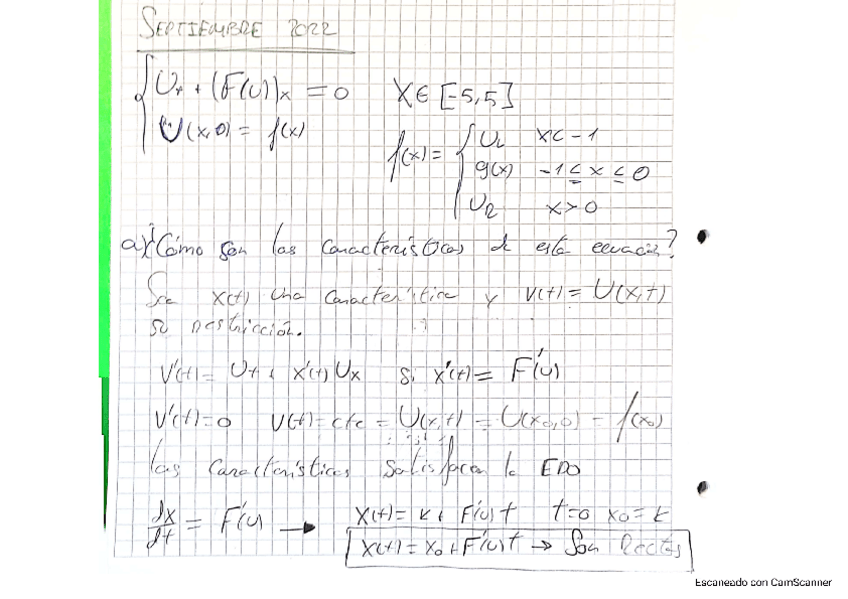 SEPTIEMBRE 2022
U_t + (F(U))_x = 0 X ∈ [-5,5]
U(x,0) = f(x)
f(x) = { U_L x < -1
g(x) -1 ≤ x ≤ 0
U_R x > 0
a) ¿Cómo son las características de esta ecuación?
Sea x(t) una característica y V(t) = U(x,t)
su restricción.
V'(t) = U_t + x'(t) U_x si x'(t) = F'(U)
V'(t) = 0 V(t) = cte = U(x,t) = U(x_0,0) = f(x_0)
las características satisfacen la EDO
dx/dt = F'(U) → x(t) = k + F'(U) t t=0 x_0 = k
x(t) = x_0 + F'(U) t → Son Rectas
Escaneado con CamScanner